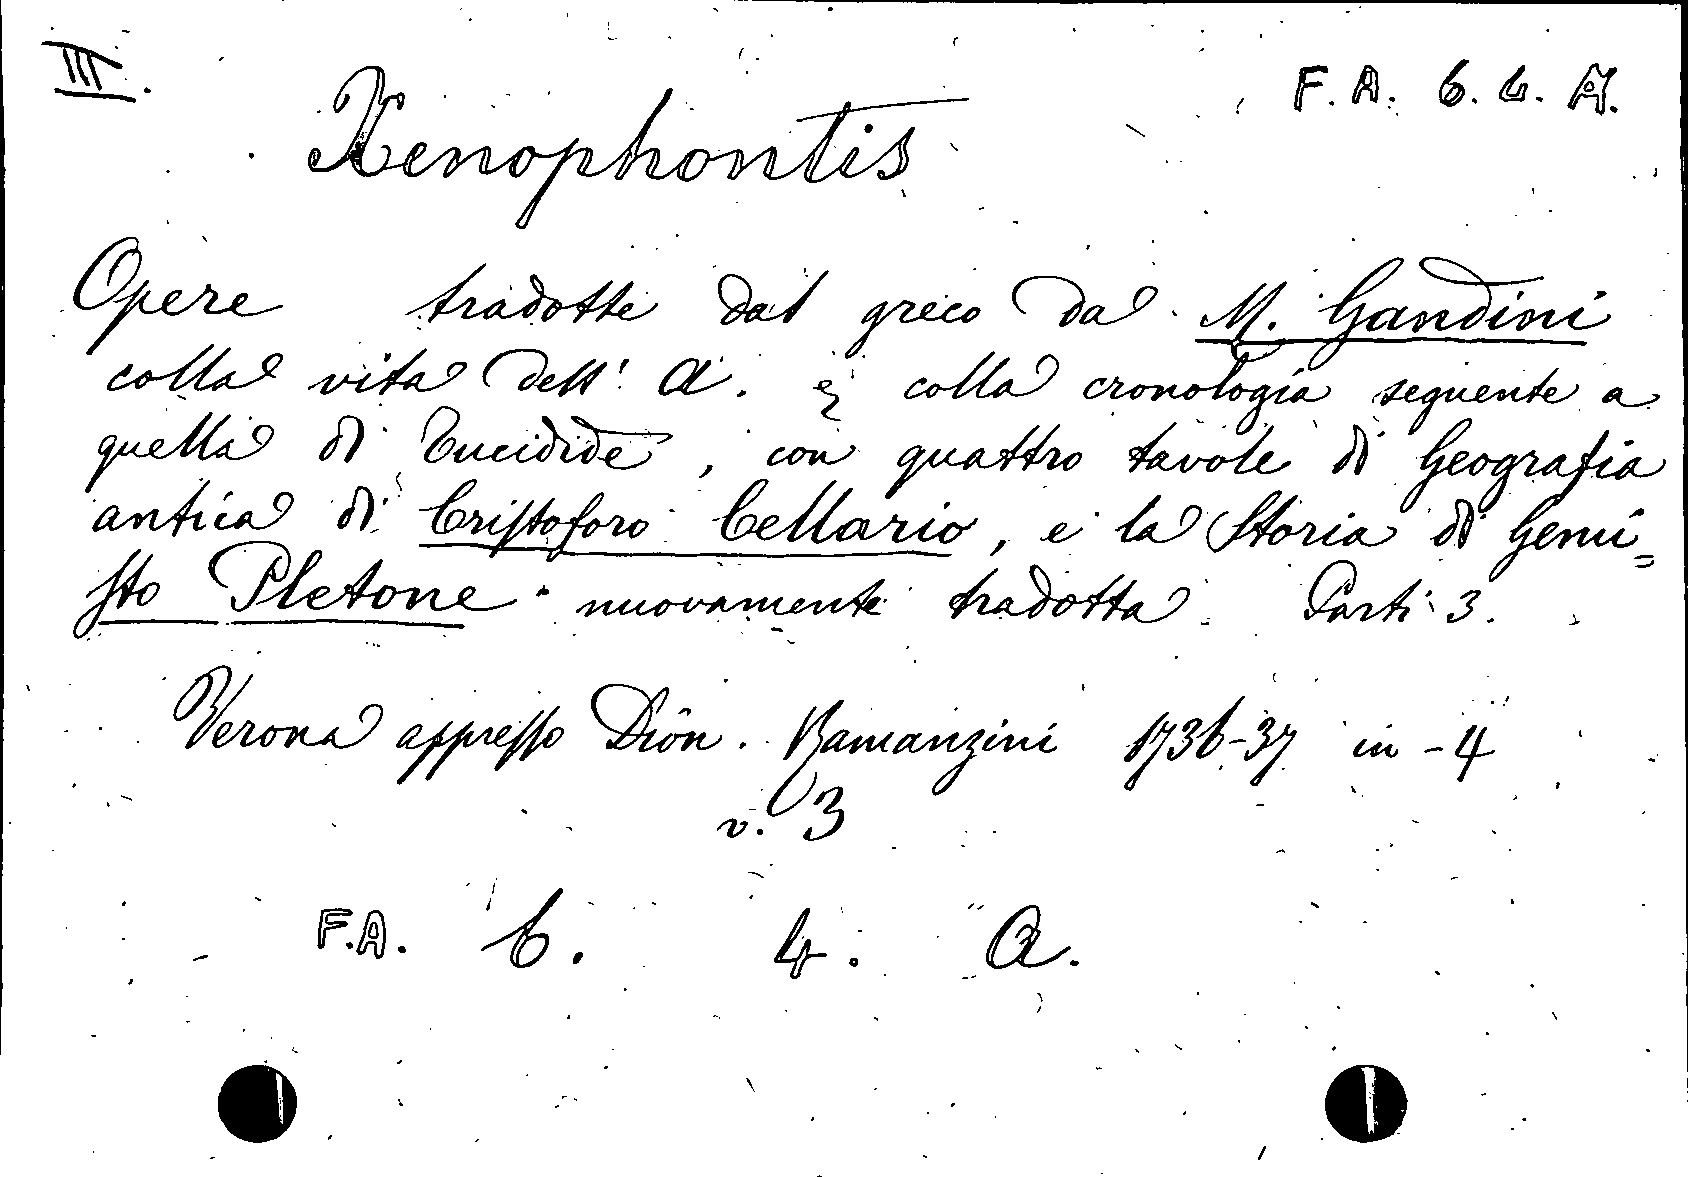 III.
F. A. 6. 4. A.
Xenophontis
Opere tradotte dal greco da M. Gandini
colla vita dell' A. e colla cronologia seguente a
quella di Tucidide, con quattro tavole di Geografia
antica di Cristoforo Cellario, e la Storia di Gemi=
sto Pletone nuovamente tradotta. Parti 3.
Verona appresso Dion. Ramanzini 1736-37 in-4
v. 3
F.A. 6. 4. A.